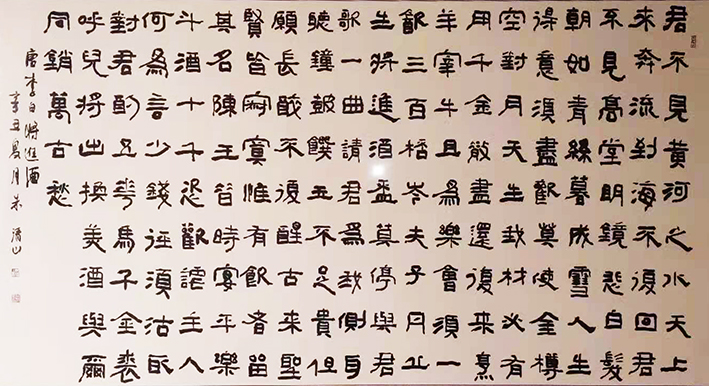 君不見黃河之水天上
來奔流到海不復回君
不見高堂明鏡悲白髮
朝如青絲暮成雪人生
得意須盡歡莫使金樽
空對月天生我材必有
用千金散盡還復來烹
羊宰牛且爲樂會須一
飲三百桮岑夫子丹丘
生將進酒盃莫停與君
歌一曲請君爲我側身
聽鐘鼓饌玉不足貴但
願長醉不復醒古來聖
賢皆寂寞惟有飲者留
其名陳王昔時宴平樂
斗酒十千恣歡謔主人
何爲言少錢徑須沽取
對君酌五花馬千金裘
呼兒將出換美酒與爾
同銷萬古愁
唐李白將進酒
辛丑夏月